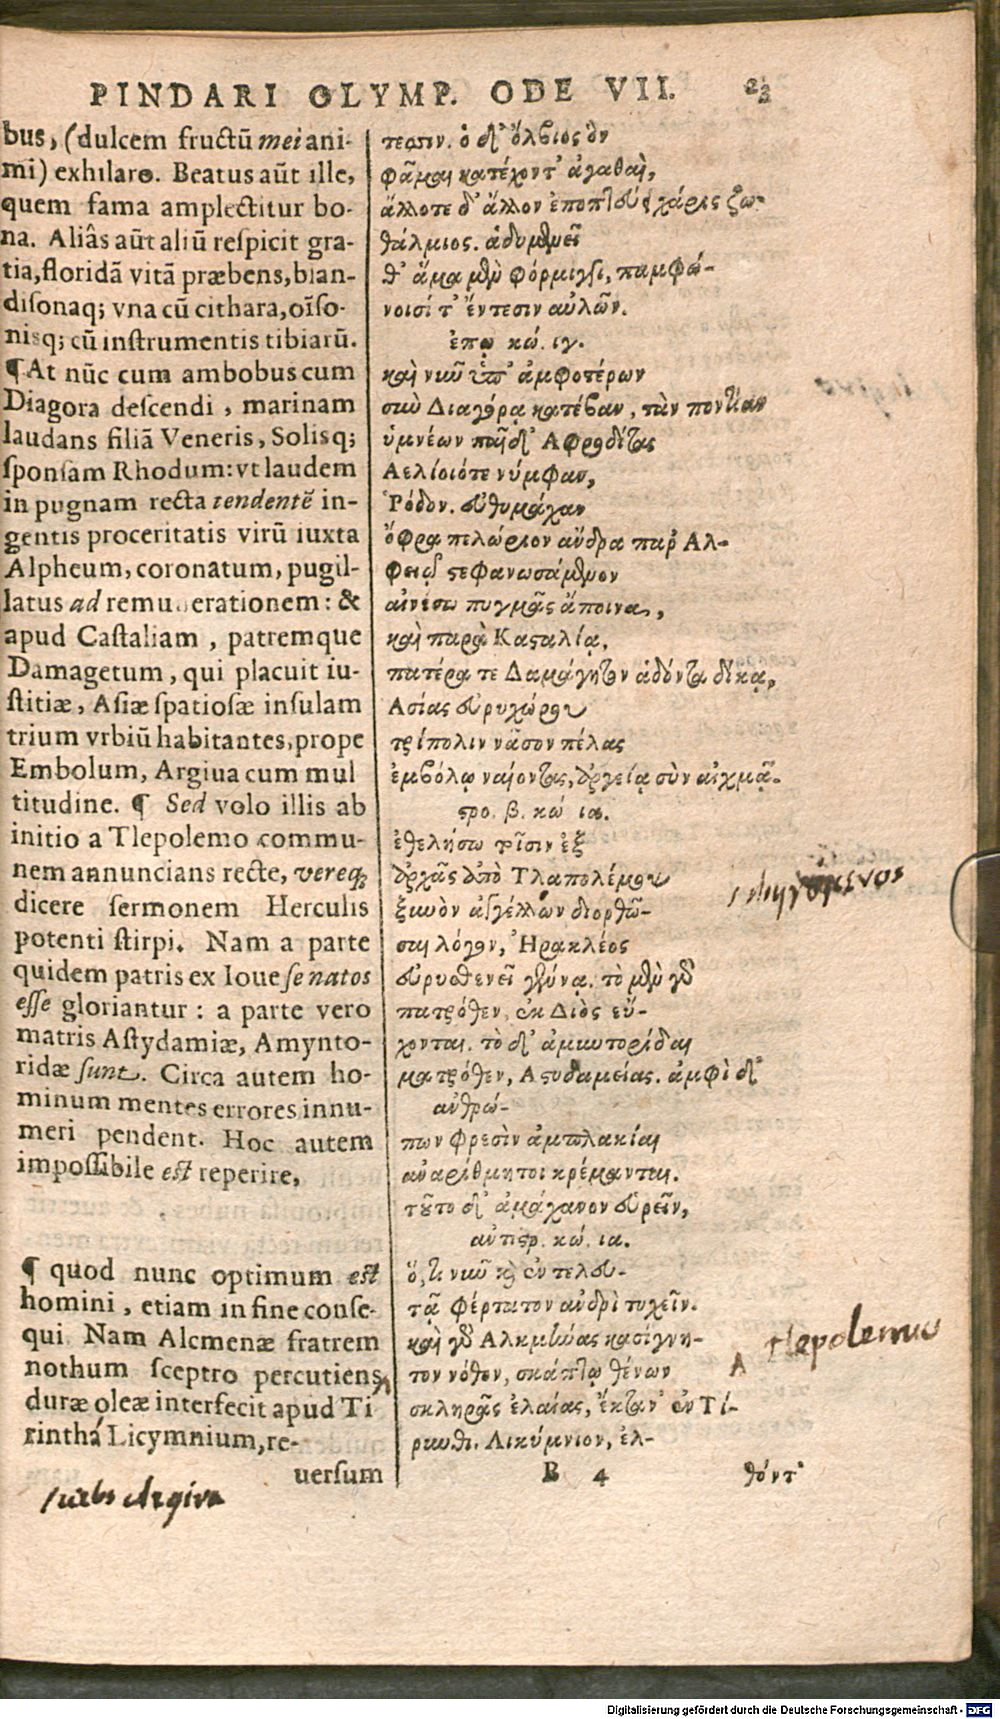 PINDARI OLYMP. ODE VII. 23
bus, (dulcem fructū mei ani-
mi) exhilaro. Beatus aūt ille,
quem fama amplectitur bo-
na. Aliâs aūt aliū reſpicit gra-
tia, floridā vitā præbens, blan-
diſonaq; vna cū cithara, oīſo-
niſq; cū inſtrumentis tibiarū.
¶ At nūc cum ambobus cum
Diagora deſcendi, marinam
laudans filiā Veneris, Soliſq;
ſponſam Rhodum: vt laudem
in pugnam recta tendentē in-
gentis proceritatis virū iuxta
Alpheum, coronatum, pugil-
latus ad remunerationem: &
apud Caſtaliam, patremque
Damagetum, qui placuit iu-
ſtitiæ, Aſiæ ſpatioſæ inſulam
trium vrbiū habitantes, prope
Embolum, Argiua cum mul
titudine. ¶ Sed volo illis ab
initio a Tlepolemo commu-
nem annuncians recte, vereq;
dicere ſermonem Herculis
potenti ſtirpi. Nam a parte
quidem patris ex Ioue ſe natos
eſſe gloriantur: a parte vero
matris Aſtydamiæ, Amynto-
ridæ ſunt. Circa autem ho-
minum mentes errores innu-
meri pendent. Hoc autem
impoſſibile eſt reperire,
¶ quod nunc optimum eſt
homini, etiam in fine conſe-
qui. Nam Alcmenæ fratrem
nothum ſceptro percutiens
duræ oleæ interfecit apud Ti
rintha Licymnium, re-
uerſum
τεφπιν. ὁ δ' ὄλβιος ὃν
φᾶμαι κατέχοντ' ἀγαθαὶ,
ἄλλοτε δ' ἄλλον ἐποπτεύει χάρις ζω-
θάλμιος. ἁδυμελεῖ
θ' ἅμα μὲν φόρμιγγι, παμφώ-
νοισί τ' ἔντεσιν αὐλῶν.
ἐπῳ. κώ. ιγ.
καὶ νῦν ὑπ' ἀμφοτέρων
σὺν Διαγόρᾳ κατέβαν, τὰν ποντίαν
ὑμνέων παῖδ' Ἀφροδίτας
Ἀελίοιό τε νύμφαν,
Ῥόδον. εὐθυμάχαν
ὄφρα πελώριον ἄνδρα παρ' Ἀλ-
φειῷ στεφανωσάμενον
αἰνέσω πυγμᾶς ἄποινα,
καὶ παρὰ Κασταλίᾳ,
πατέρα τε Δαμάγητον ἁδόντα δίκᾳ,
Ἀσίας εὐρυχώρου
τρίπολιν νᾶσον πέλας
ἐμβόλῳ ναίοντας, ἀργείᾳ σὺν αἰχμᾷ.
στρο. β. κώ ια.
ἐθελήσω τοῖσιν ἐξ
ἀρχᾶς ἀπὸ Τλαπολέμου
ξυνὸν ἀγγέλλων διορθῶ-
σαι λόγον, Ἡρακλέος
εὐρυσθενεῖ γέννᾳ. τὸ μὲν γὸ
πατρόθεν, ἐκ Διὸς εὔ-
χονται. τὸ δ' ἀμυντορίδαι
ματρόθεν, Ἀστυδαμείας. ἀμφὶ δ'
ἀνθρώ-
πων φρεσὶν ἀμπλακίαι
ἀναρίθμητοι κρέμανται.
τοῦτο δ' ἀμάχανον εὑρεῖν,
ἀντιστρ. κώ. ια.
ὅ,τι νῦν καὶ ἐν τελευ-
τᾷ φέρτατον ἀνδρὶ τυχεῖν.
καὶ γὸ Ἀλκμήνας κασίγνη-
τον νόθον, σκάπτῳ θένων
σκληρᾶς ἐλαίας, ἔκταν' ἐν Τί-
ρυνθι. Λικύμνιον, ἐλ-
B 4 θόντ'
A Tlepolemus
A
urbs Argiva
Digitalisierung gefördert durch die Deutsche Forschungsgemeinschaft - DFG